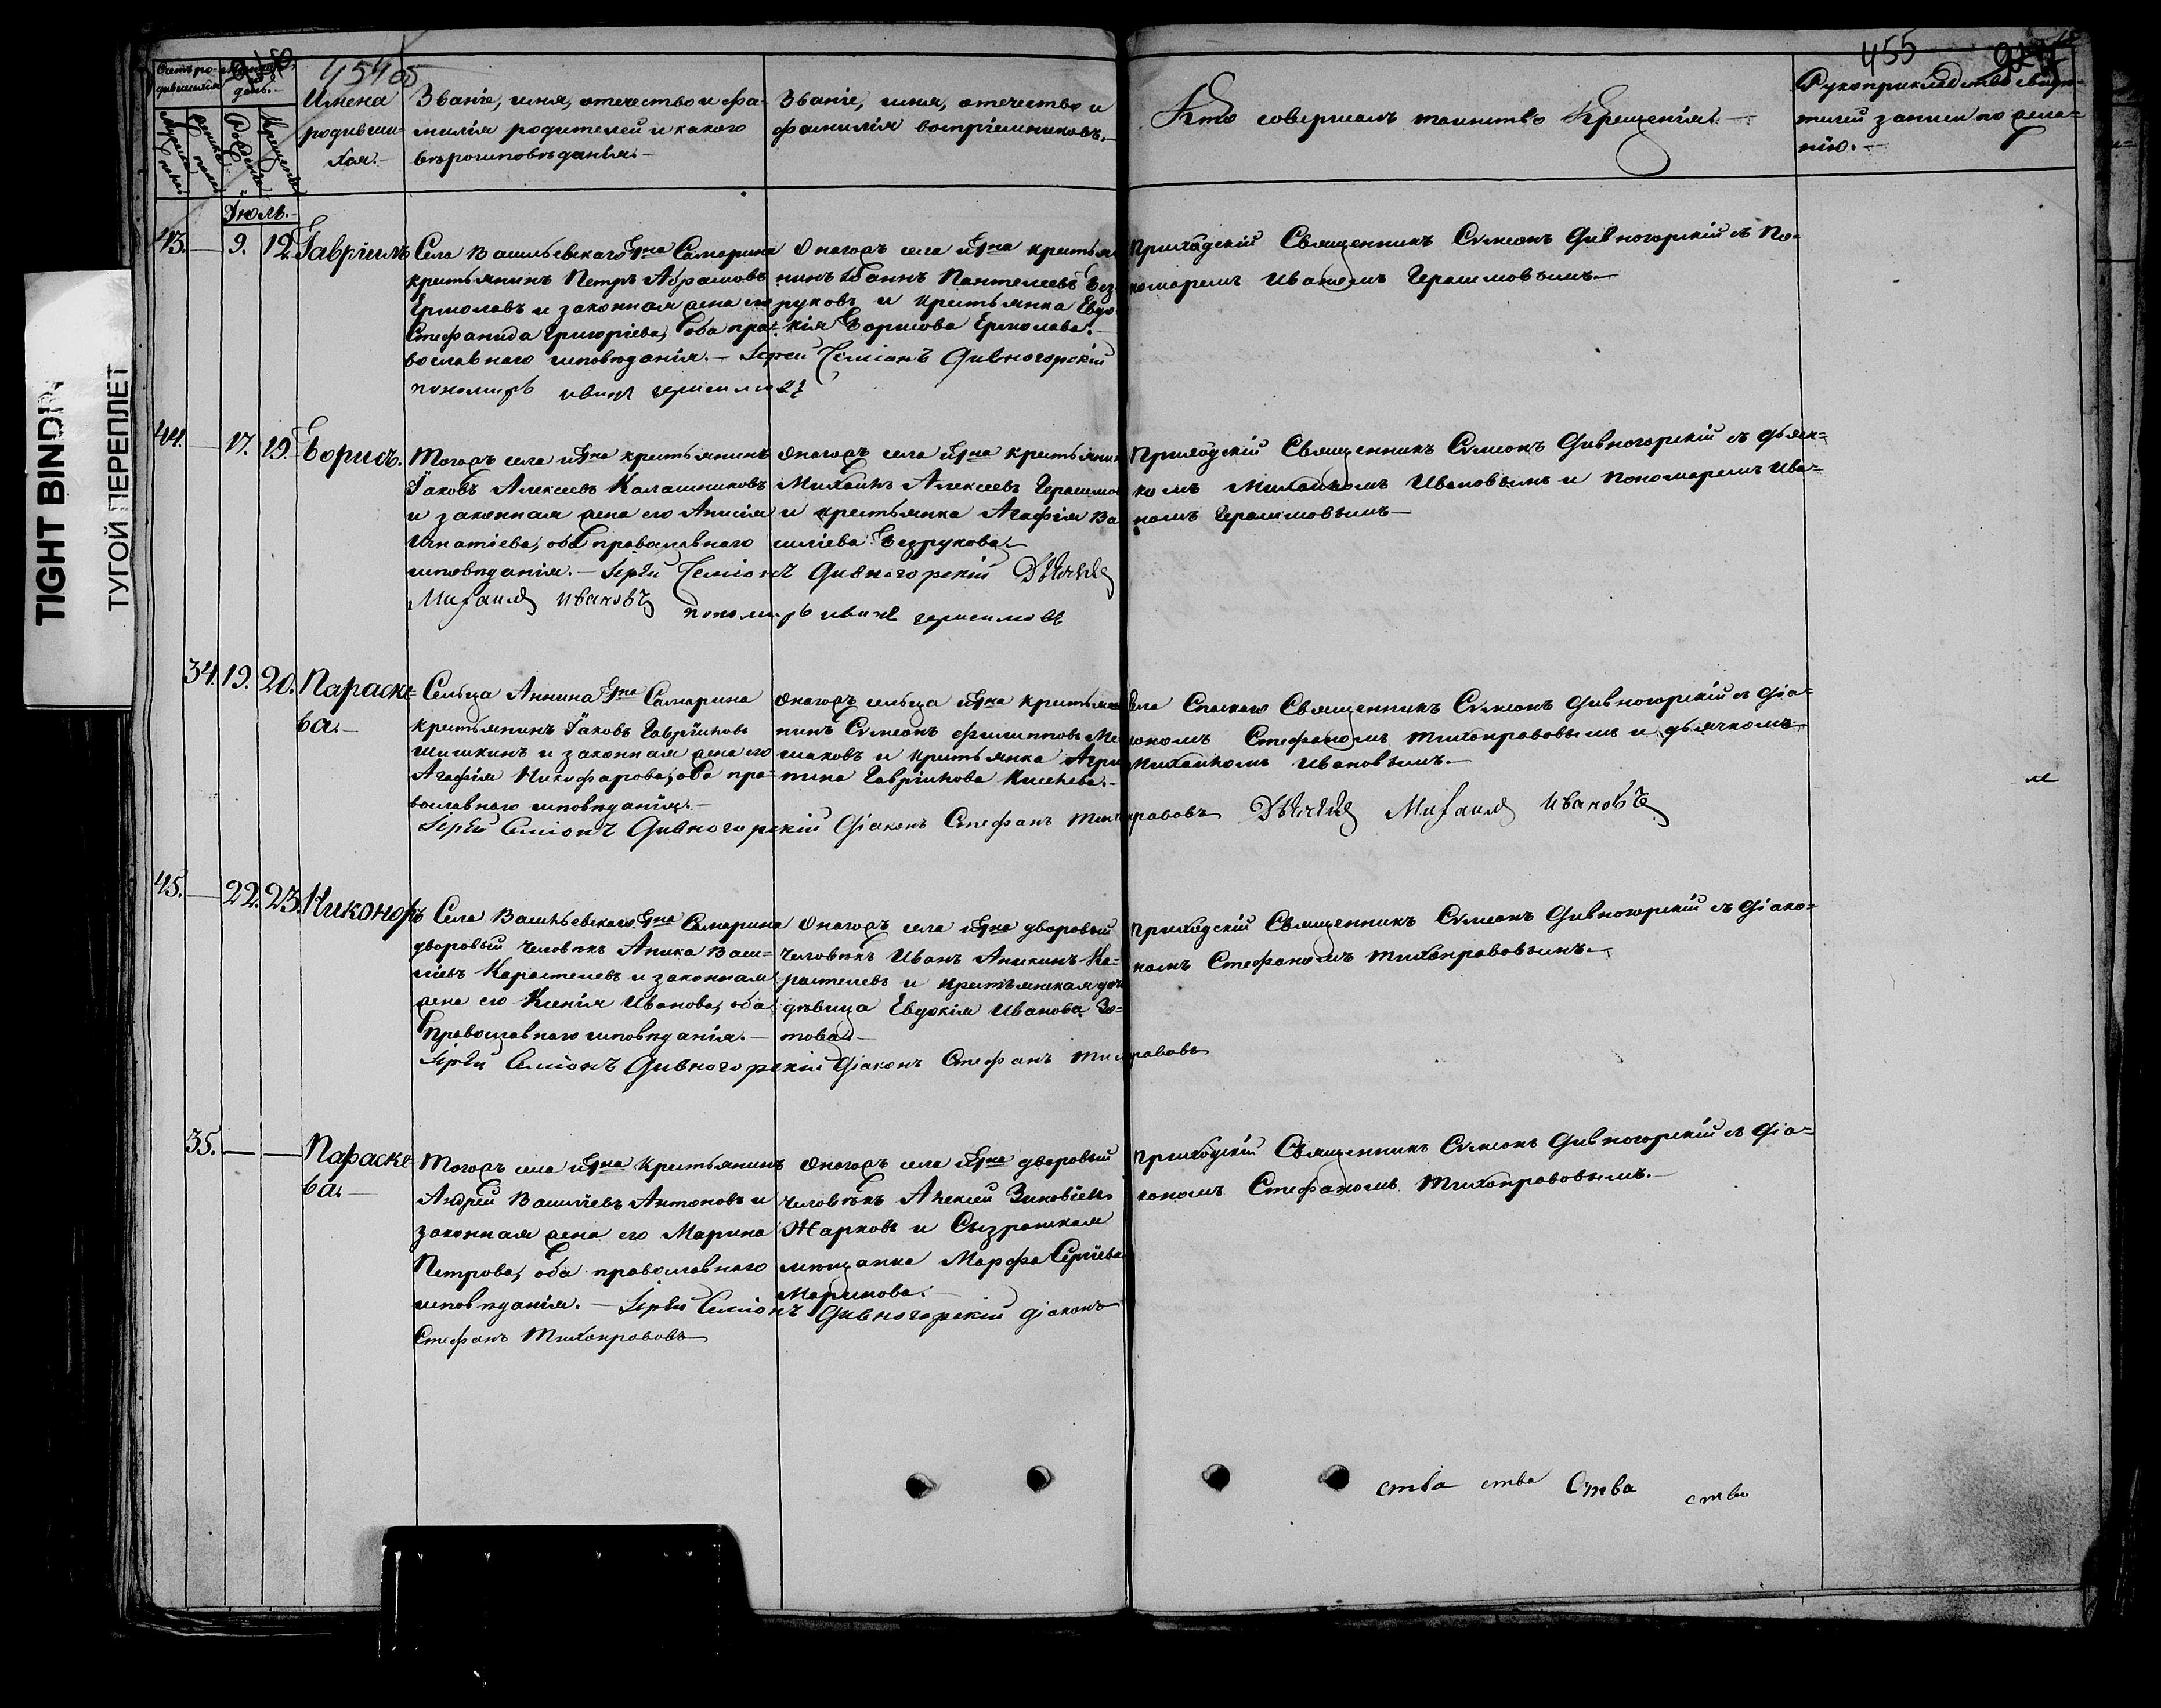 TIGHT BINDIN
ТУГОЙ ПЕРЕПЛЕТ
454 об
455
Имена
родивши-
хся.
Званіе, имя, отечество и фа-
милія родителей и какого
вѣроисповѣданія.
Званіе, имя, отечество и
фамилія воспріемниковъ.
Кто совершалъ таинство Крещенія.
Рукоприкладство свидѣ-
телей записи по жела-
нію.
Іюль.
43. — 9. 12. Гавріилъ
Села Васильевскаго Гна Самарина
крестьянинъ Петръ Абрамовъ
Ермолавъ и законная жена его
Стефанида Григоріева, оба пра-
вославнаго исповѣданія. — Іерей Семіонъ Дивногорскій
пономарь иванъ герасимовъ
Онагожъ села и Гна крестья
нинъ Іоаннъ Пантелеевъ Без
руковъ и крестьянка Евдо
кія Борисова Ермолава.
Приходскій Священникъ Симеонъ Дивногорскій съ По-
номаремъ Иваномъ Герасимовымъ.
44. — 17. 19. Борисъ.
Тогожъ села и Гна крестьянинъ
Іаковъ Алексеевъ Калашниковъ
и законная жена его Анисія
Игнатіева, оба православнаго
исповѣданія. — Іерей Семіонъ Дивногорскій Дьячекъ
Михаилъ Ивановъ пономарь иванъ герасимовъ
Онагожъ села и Гна крестьянин
Михаилъ Алексеевъ Герасимов
и крестьянка Агафія Ва
силіева Безрукова.
Приходскій Священникъ Симеонъ Дивногорскій съ дьяч-
комъ Михаиломъ Ивановымъ и пономаремъ Ива-
номъ Герасимовымъ
34. 19. 20. Параске-
ва.
Сельца Аннина Гна Самарина
крестьянинъ Іаковъ Гавріиловъ
Шишкинъ и законная жена его
Агафія Никифарова, оба пра-
вославнаго исповѣданія.
Онагожъ сельца и Гна крестьян
нинъ Симеонъ Филипповъ Ме
шаковъ и крестьянка Агри
пина Гавріилова Киселева.
Села Спаскаго Священникъ Симеонъ Дивногорскій съ Діа-
кономъ Стефаномъ Тихонравовымъ и дьячкомъ
Михаиломъ Ивановымъ.
Іерей Семіонъ Дивногорскій Діаконъ Стефанъ Тихонравовъ Дьячекъ Михаилъ Ивановъ
45. — 22. 23. Никоноръ
Села Васильевскаго Гна Самарина
дворовый человѣкъ Аника Васи-
ліевъ Карастелевъ и законная
жена его Ксенія Иванова, оба
Православнаго исповѣданія.
Онагожъ села и Гна дворовый
человѣкъ Иванъ Аникинъ Ка-
растелевъ и крестьянская доч
дѣвица Евдокія Иванова Зо-
това.
Приходскій Священникъ Симеонъ Дивногорскій съ Діако-
номъ Стефаномъ Тихонравовымъ.
Іерей Семіонъ Дивногорскій Діаконъ Стефанъ Тихонравовъ
35. — — Параске-
ва.
Тогожъ села и Гна Крестьянинъ
Андрей Василіевъ Антоновъ и
законная жена его Марина
Петрова, оба православнаго
исповѣданія. — Іерей Семіонъ Дивногорскій діаконъ
Стефанъ Тихонравовъ
Онагожъ села и Гна дворовый
человѣкъ Алексей Зиновіевъ
Жарковъ и Сызранская
мещанка Марфа Сергіева
Маринова.
Приходскій Священникъ Симеонъ Дивногорскій съ Діа-
кономъ Стефаномъ Тихонравовымъ.
ства ства Ства ства